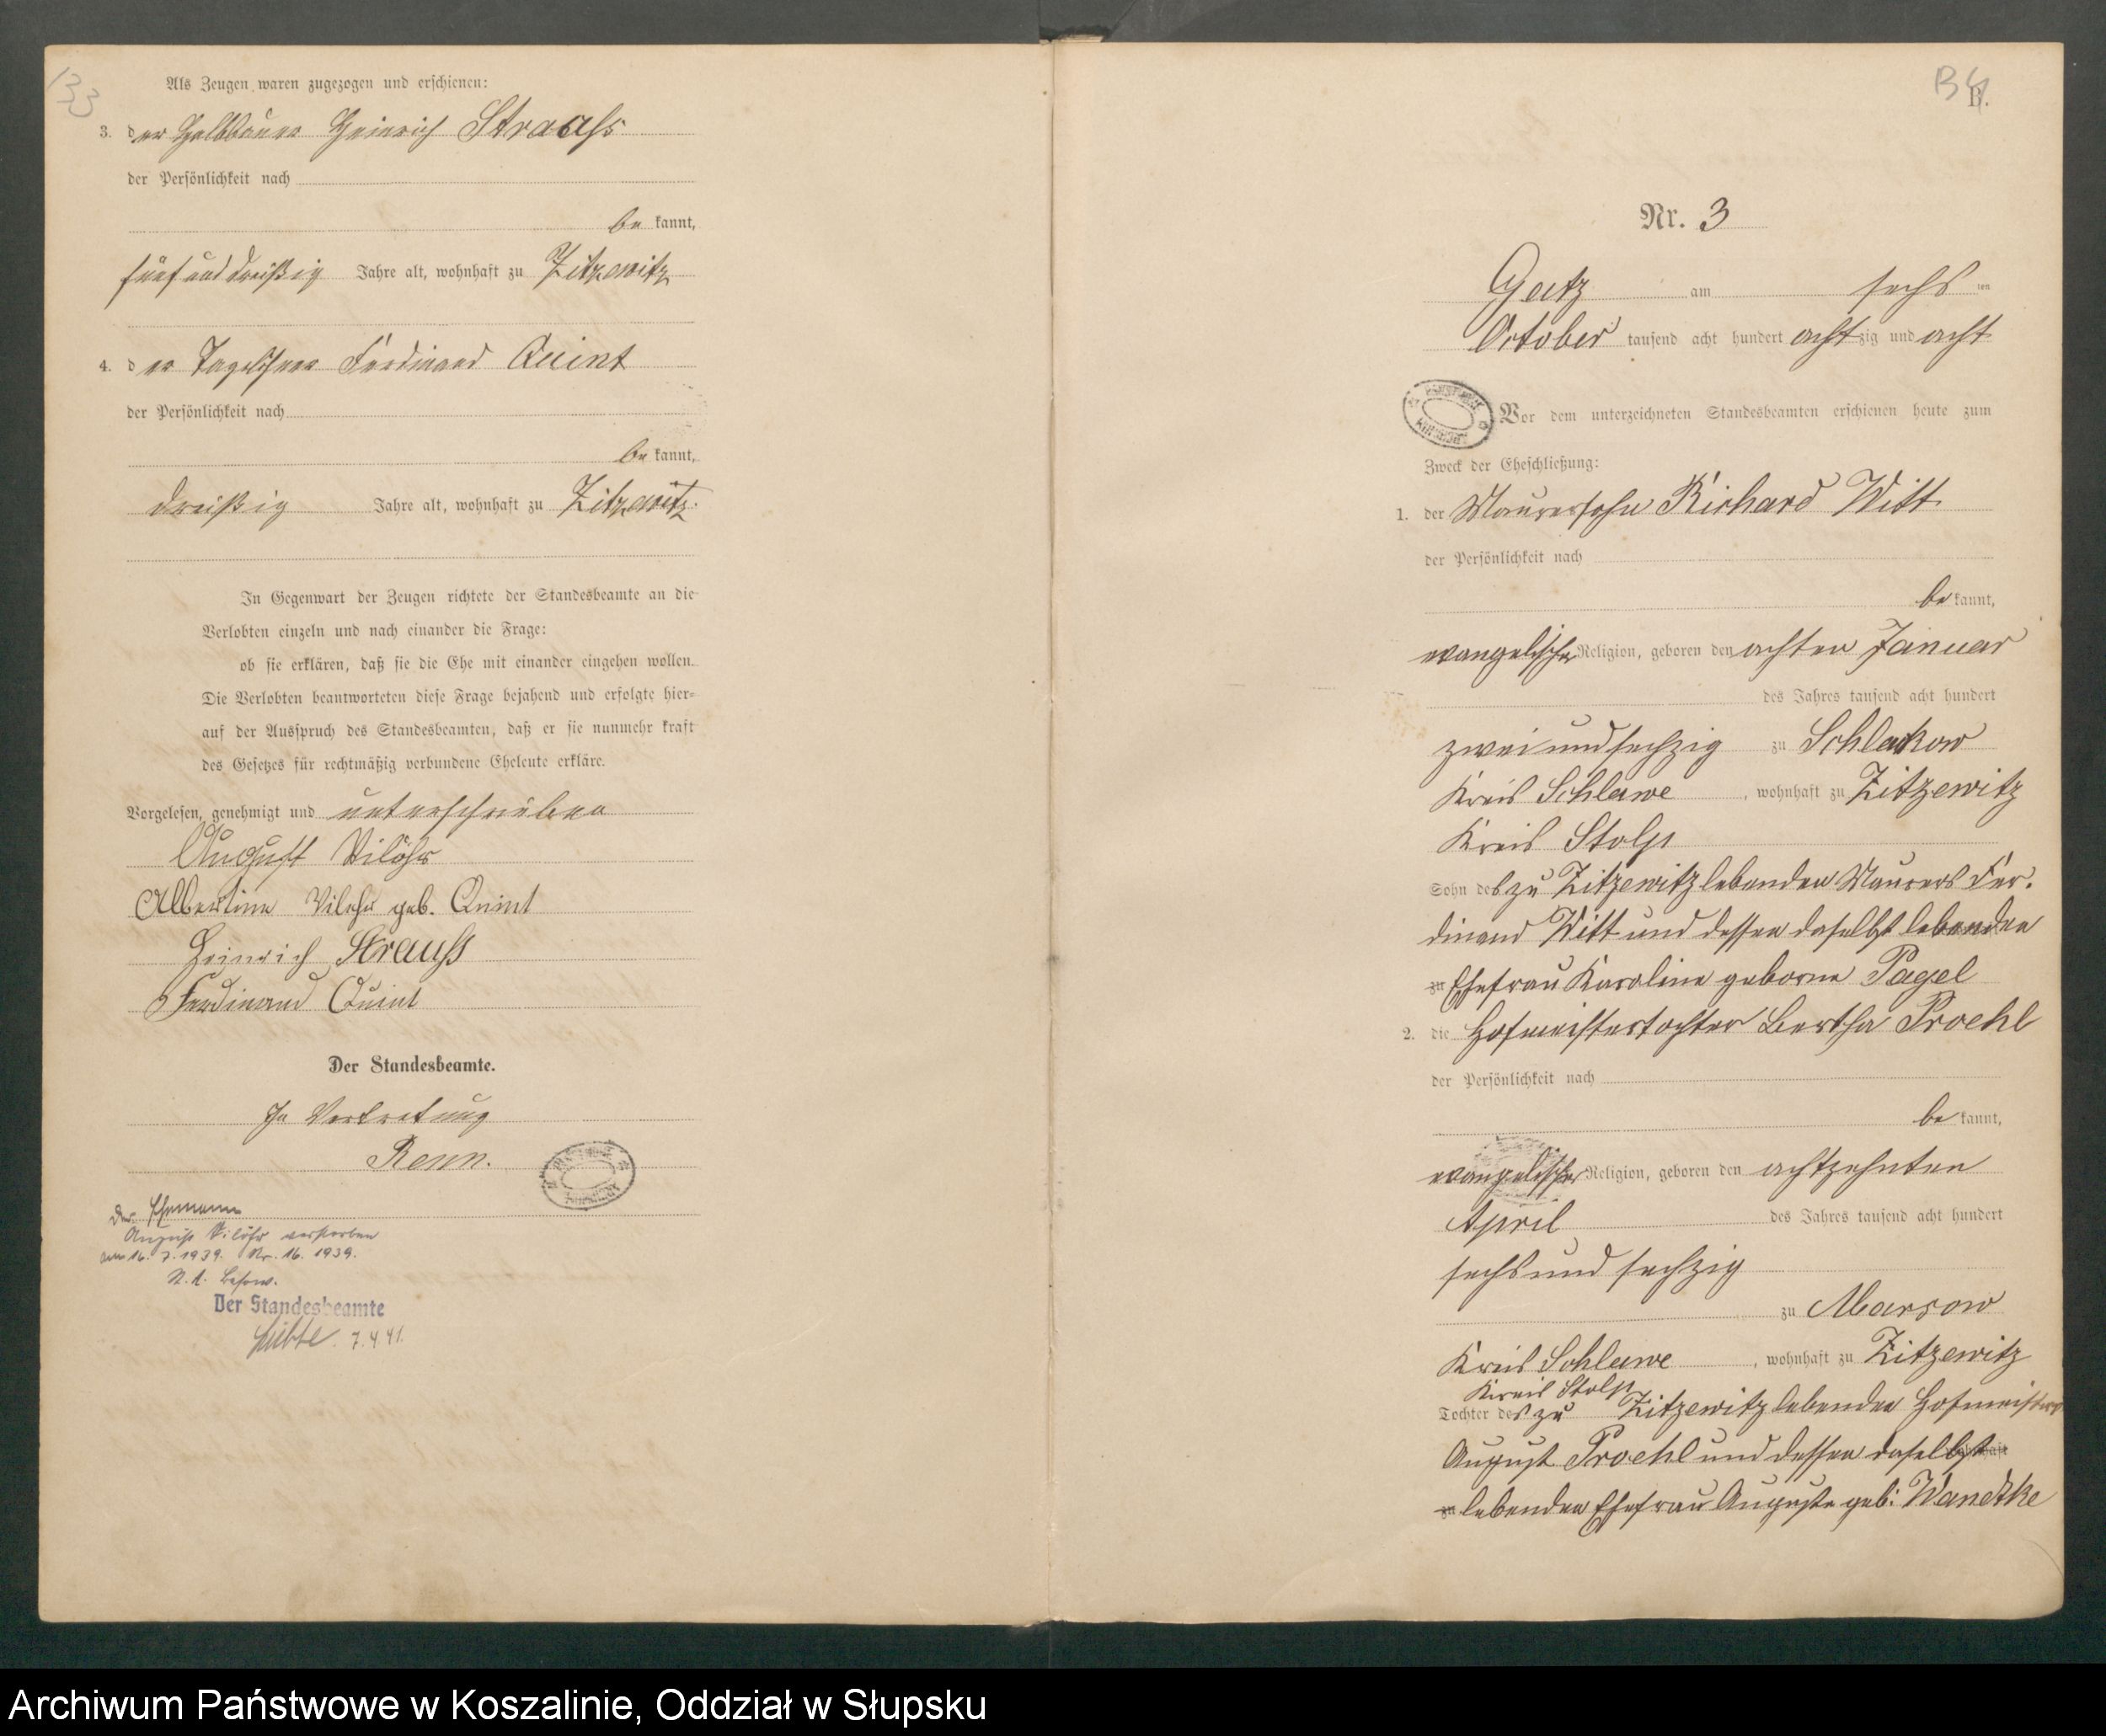 133
Als Zeugen waren zugezogen und erschienen:
3. der Halbbauer Heinrich Strauß
der Persönlichkeit nach
be kannt,
fünfunddreißig Jahre alt, wohnhaft zu Zitzewitz
4. der Tagelöhner Ferdinand Quint
der Persönlichkeit nach
be kannt,
dreißig Jahre alt, wohnhaft zu Zitzewitz.
In Gegenwart der Zeugen richtete der Standesbeamte an die
Verlobten einzeln und nach einander die Frage:
ob sie erklären, daß sie die Ehe mit einander eingehen wollen.
Die Verlobten beantworteten diese Frage bejahend und erfolgte hier-
auf der Ausspruch des Standesbeamten, daß er sie nunmehr kraft
des Gesetzes für rechtmäßig verbundene Eheleute erkläre.
Vorgelesen, genehmigt und unterschrieben
August Vilöhr
Albertine Vilöhr geb. Quint
Heinrich Strauß
Ferdinand Quint
Der Standesbeamte.
In Vertretung
Renn.
Der Ehemann
August Vilöhr verstorben
am 16. 7. 1939. Nr. 16. 1939.
Der Standesbeamte
7.4.41.
B.
Nr. 3
Gatz am sechs ten
October tausend acht hundert achtzig und acht
Vor dem unterzeichneten Standesbeamten erschienen heute zum
Zweck der Eheschließung:
1. der Maurersohn Richard Witt
der Persönlichkeit nach
be kannt,
evangelischer Religion, geboren den achten Januar
des Jahres tausend acht hundert
zweiundsechzig zu Schlackow
Kreis Schlawe, wohnhaft zu Zitzewitz
Kreis Stolp
Sohn des zu Zitzewitz lebenden Maurers Fer-
dinand Witt und dessen daselbst lebenden
zu Ehefrau Karoline geborne Pagel
2. die Hofmeistertochter Bertha Proehl
der Persönlichkeit nach
be kannt,
evangelischer Religion, geboren den achtzehnten
April des Jahres tausend acht hundert
sechsundsechzig
zu Marsow
Kreis Schlawe, wohnhaft zu Zitzewitz
Kreis Stolp
Tochter des zu Zitzewitz lebenden Hofmeisters
August Proehl und dessen daselbst
zu lebenden Ehefrau Auguste geb: Wandtke
Archiwum Państwowe w Koszalinie, Oddział w Słupsku